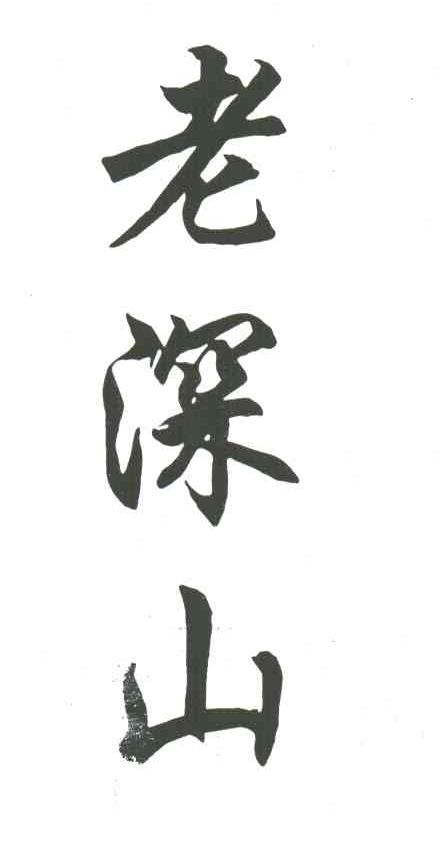 老深山